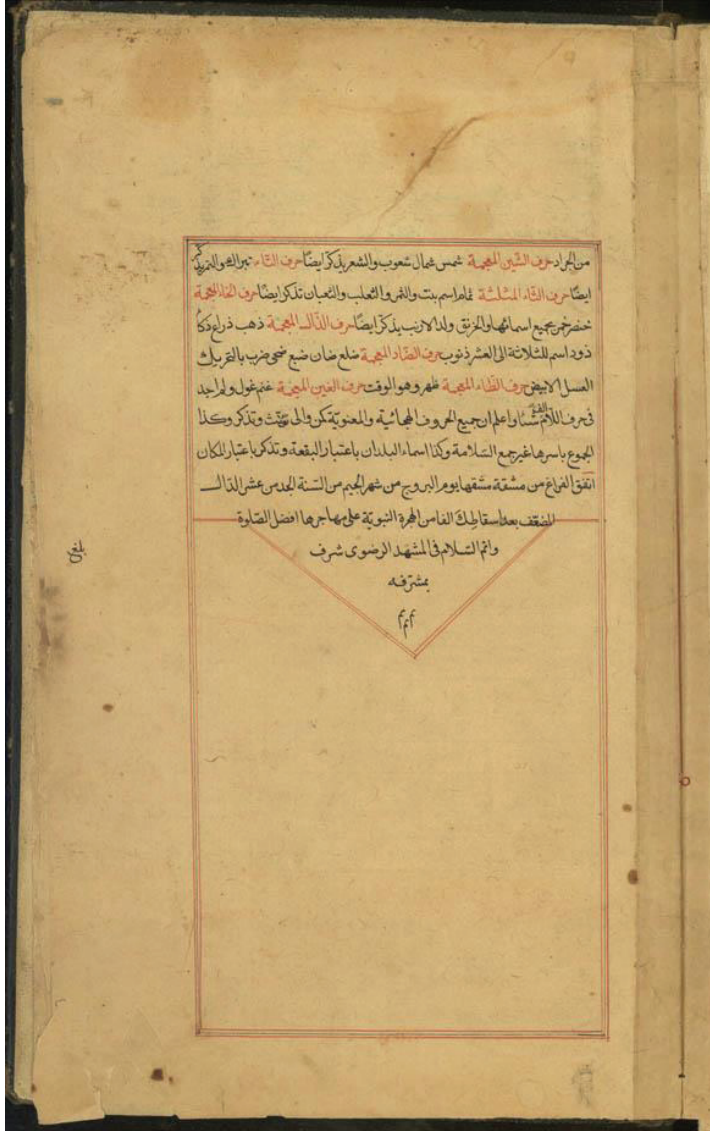 من الجراد حرف الشين المعجمة شمس شمال شعوب والشعر يذكر ايضًا حرف التاء تبر النحو والتمر يذكر
ايضًا حرف الثاء المثلثة ثمام اسم بنت والثمر والثعلب والثعبان تذكر ايضًا حرف الخاء المعجمة
خنصر خمر بجميع اسمائها والخرنق ولد الارنب يذكر ايضًا حرف الذال المعجمة ذهب ذراع ذكا
ذود اسم للثلاثة الى العشر ذنوب حرف الضاد المعجمة ضلع ضان ضبع ضحى ضرب بالتحريك
العسل الابيض حرف الظاء المعجمة ظهر وهو الوقت حرف الغين المعجمة غنم غول ولم اجد
فى حرف اللام شيئا واعلم ان جميع الحروف الهجائية والمعنوية كمن والى تؤنث وتذكر وكذا
الجموع باسرها غير جمع السلامة وكذا اسماء البلدان باعتبار البقعة وتذكر باعتبار المكان
اتفق الفراغ من مشقة مشقها يوم البروج من شهر الجيم من السنة الجد من عشر الذال
المضعف بعد اسقاط الفا من الهجرة النبوية على مهاجرها افضل الصلوة
واتم السلام فى المشهد الرضوى شرف
بمشرفه
م م م
بلغ